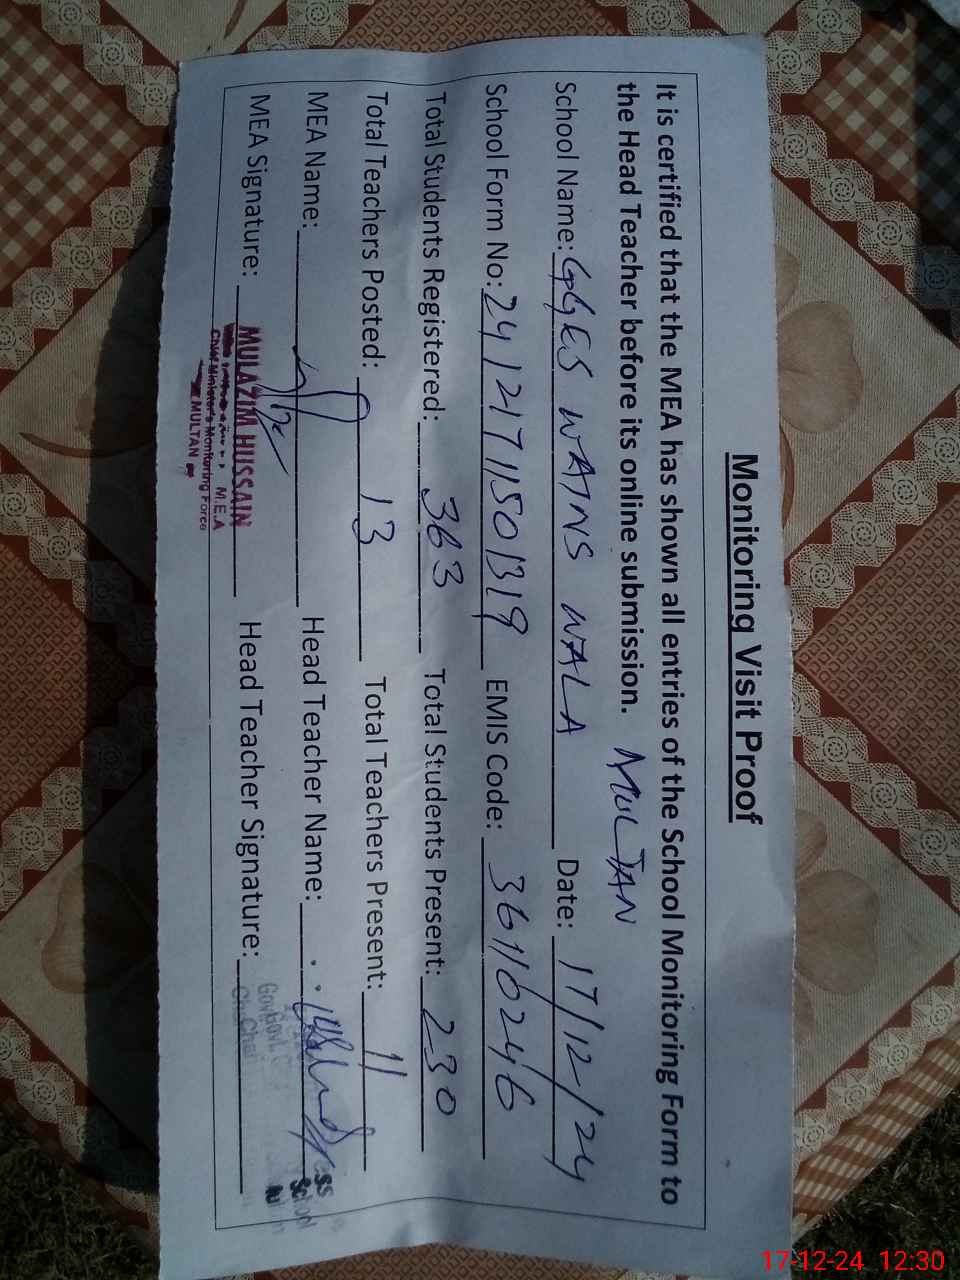 Monitoring Visit Proof
It is certified that the MEA has shown all entries of the School Monitoring Form to
the Head Teacher before its online submission. MULTAN
School Name: GGES WAINS WALA Date: 17/12/24
School Form No: 24121711501319 EMIS Code: 36110246
Total Students Registered: 363 Total Students Present: 230
Total Teachers Posted: 13 Total Teachers Present: 11
MEA Name: Head Teacher Name:
MEA Signature: Head Teacher Signature:
MULAZIM HUSSAIN
M.E.A
Chief Minister's Monitoring Force
MULTAN
School
17-12-24 12:30